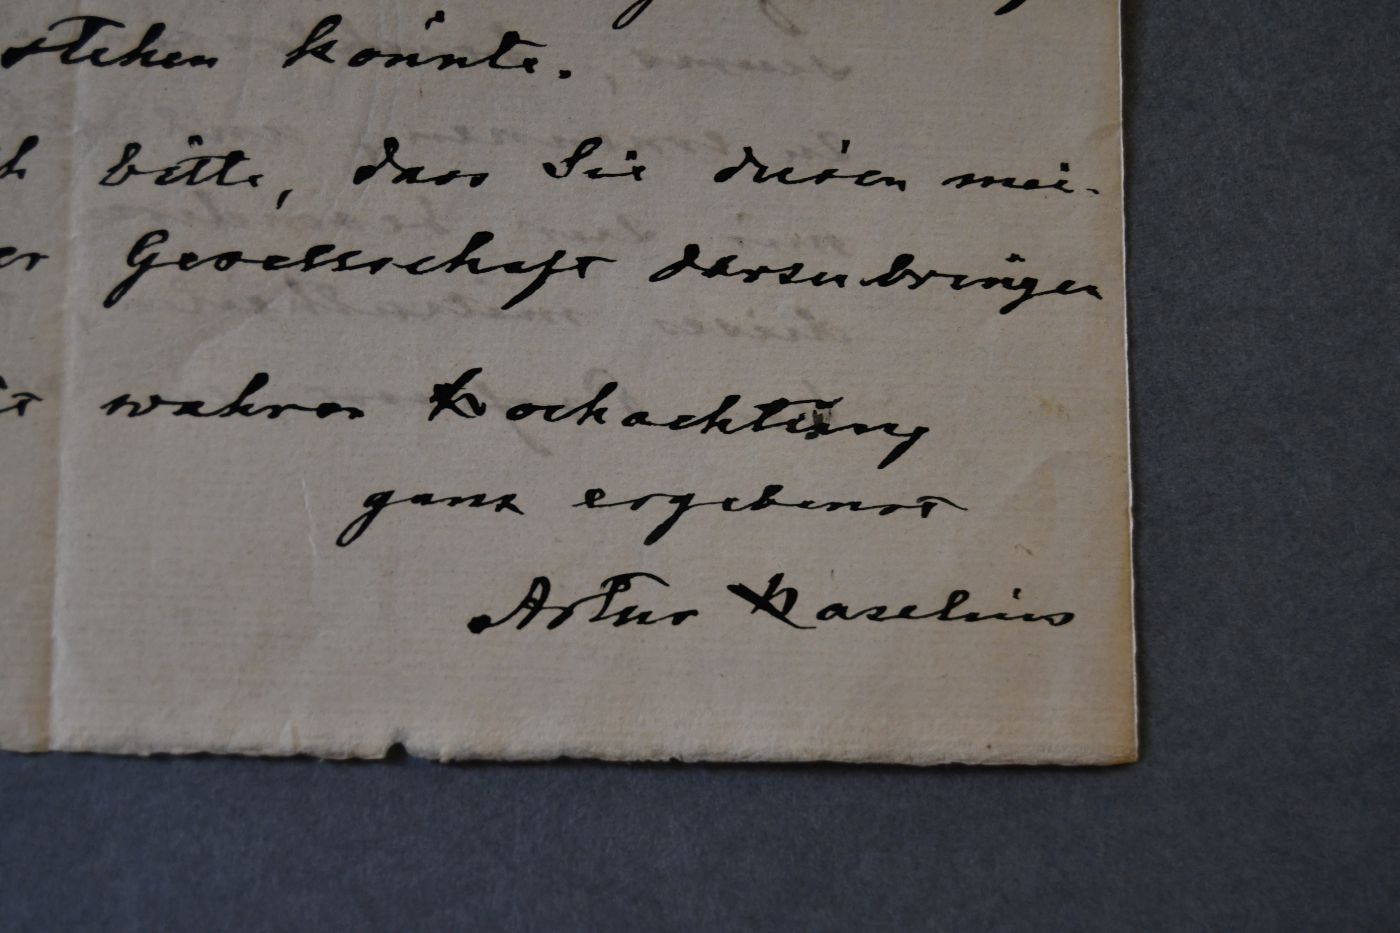 stehen könnte.
ch bitte, dass Sie diesen mei-
er Gesellschaft darzubringen
it wahrer Hochachtung
ganz ergebenst
Artur Kaselius